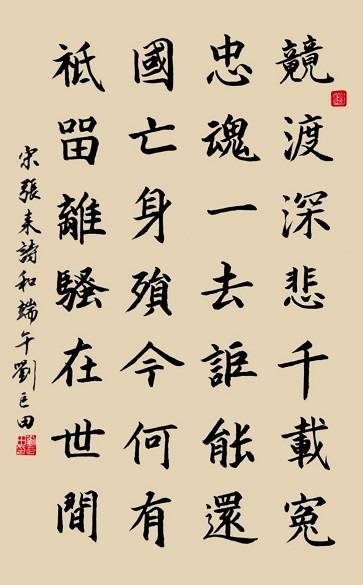 競渡深悲千載冤
忠魂一去詎能還
國亡身殞今何有
祗留離騷在世間
宋張耒詩和端午劉巨田